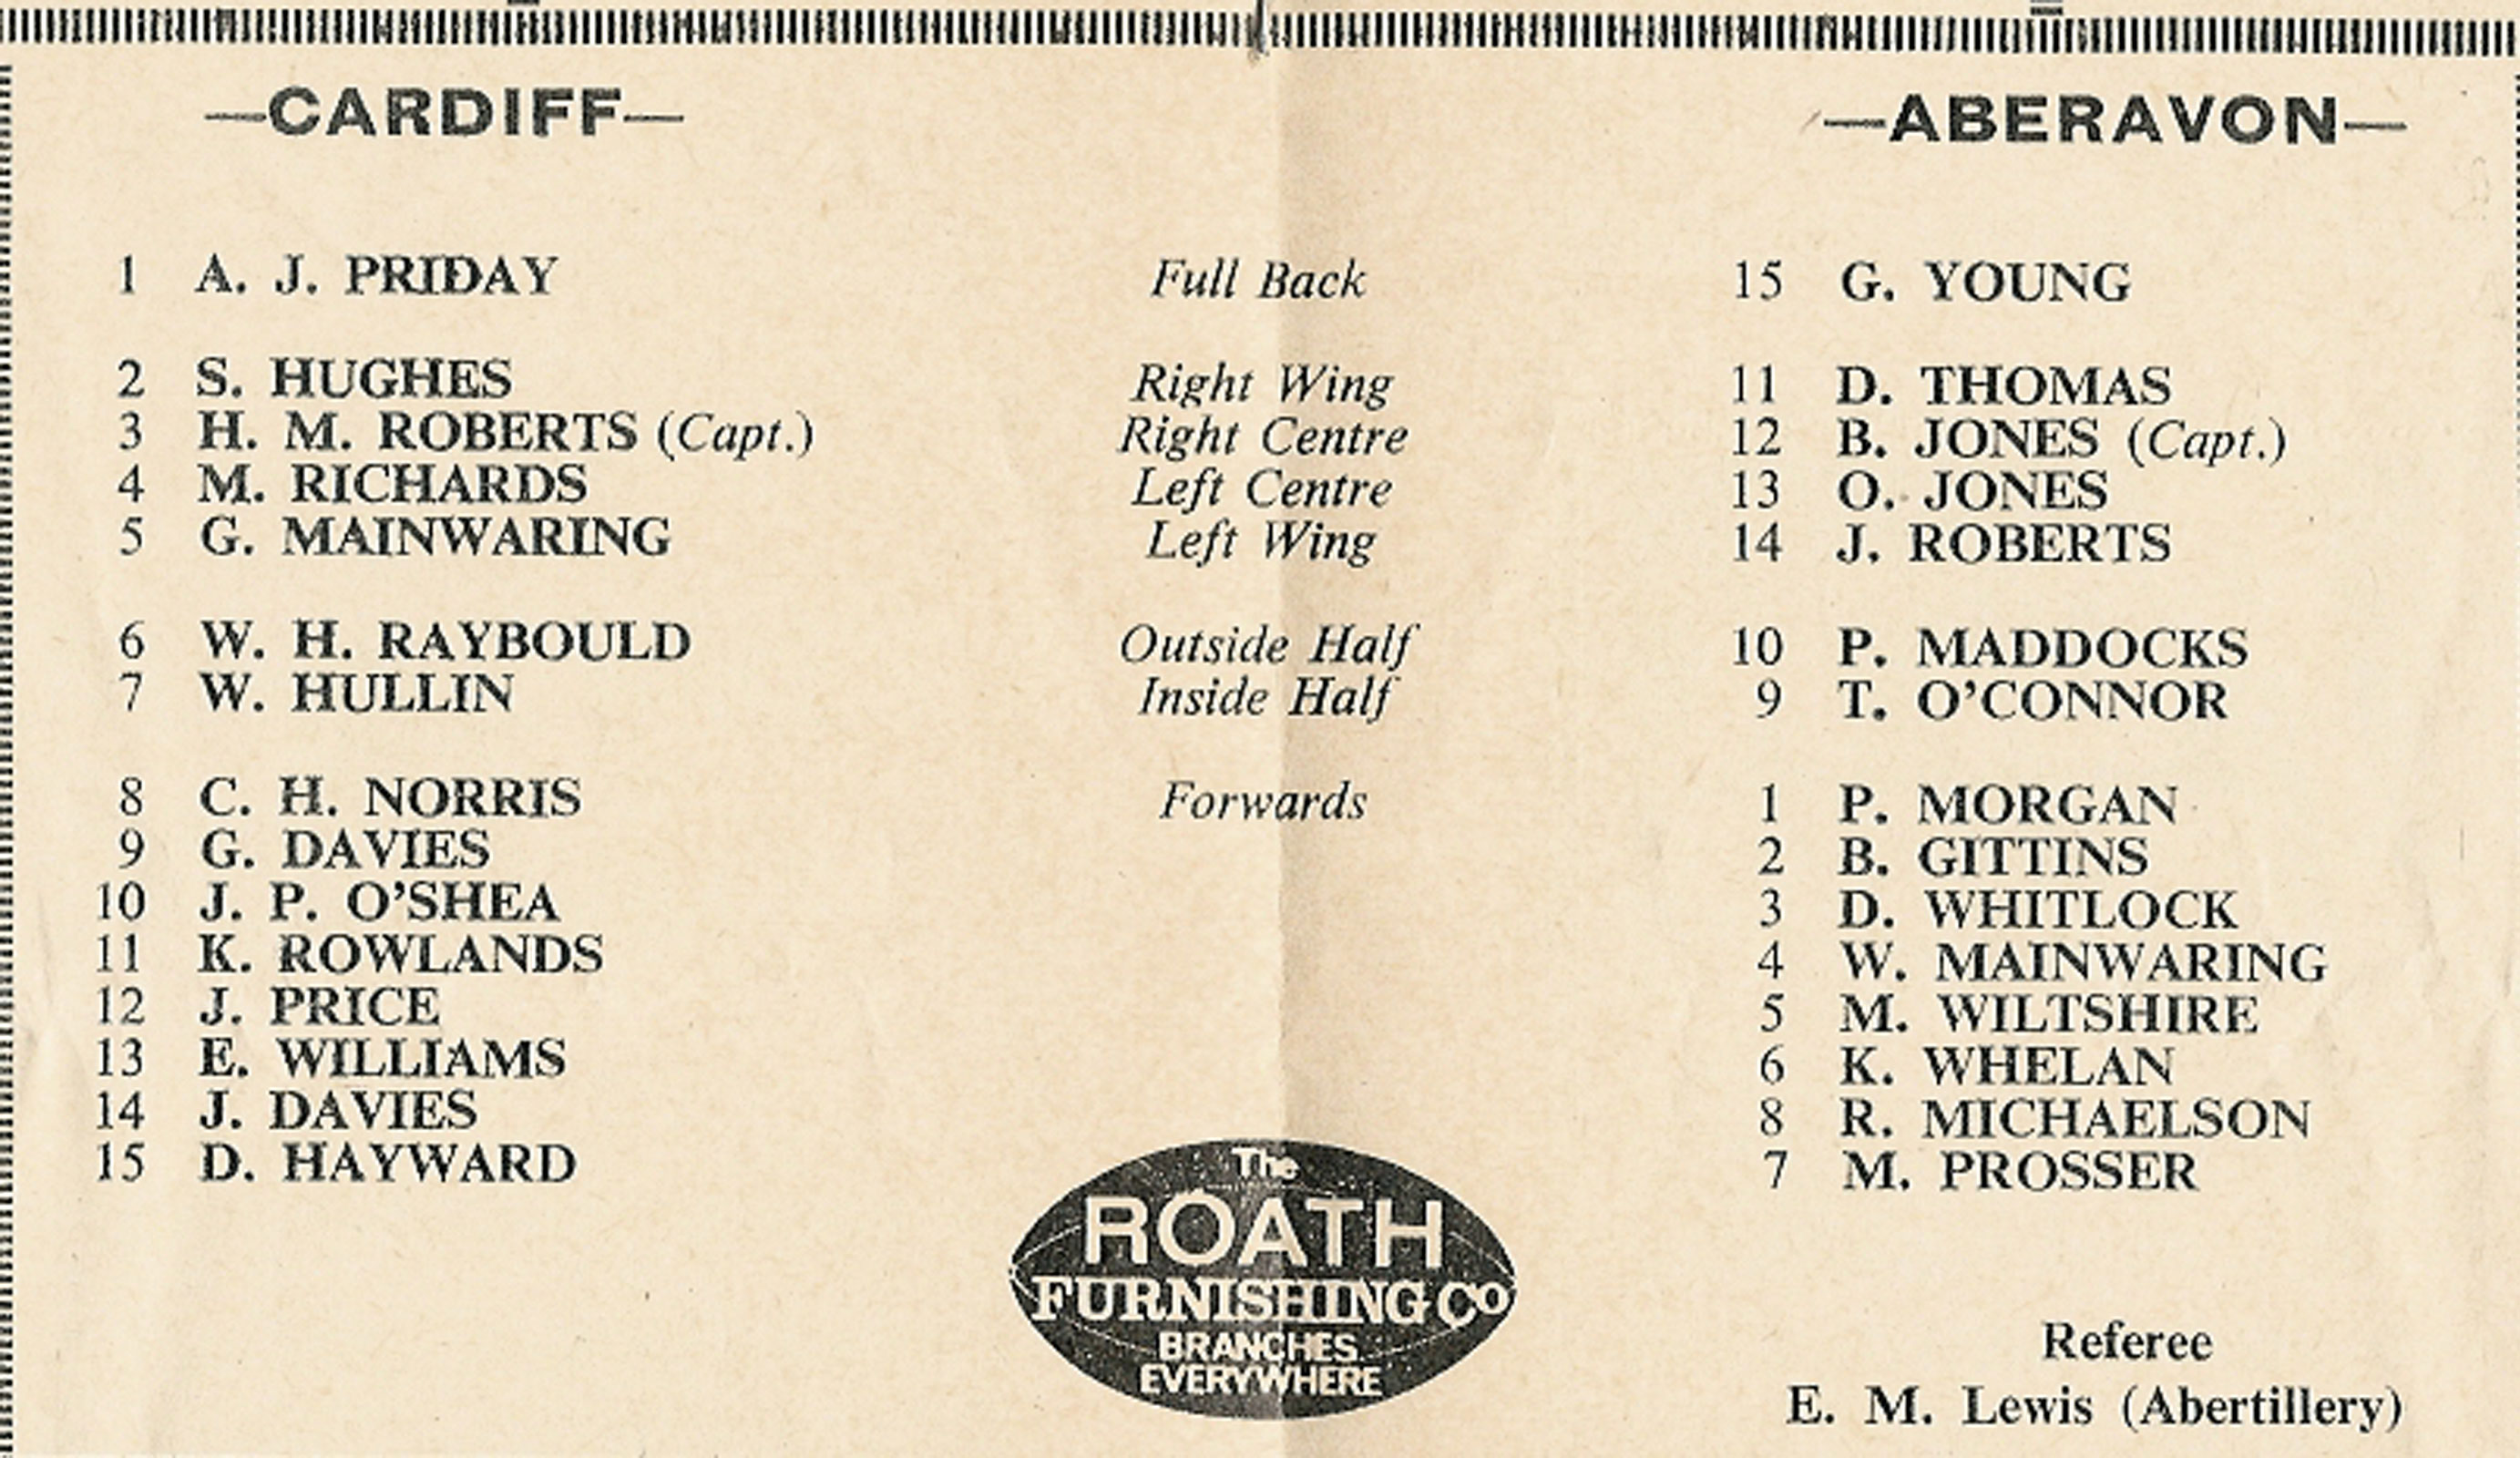 —CARDIFF— —ABERAVON—
1 A. J. PRIDAY Full Back 15 G. YOUNG
2 S. HUGHES Right Wing 11 D. THOMAS
3 H. M. ROBERTS (Capt.) Right Centre 12 B. JONES (Capt.)
4 M. RICHARDS Left Centre 13 O. JONES
5 G. MAINWARING Left Wing 14 J. ROBERTS
6 W. H. RAYBOULD Outside Half 10 P. MADDOCKS
7 W. HULLIN Inside Half 9 T. O'CONNOR
8 C. H. NORRIS Forwards 1 P. MORGAN
9 G. DAVIES 2 B. GITTINS
10 J. P. O'SHEA 3 D. WHITLOCK
11 K. ROWLANDS 4 W. MAINWARING
12 J. PRICE 5 M. WILTSHIRE
13 E. WILLIAMS 6 K. WHELAN
14 J. DAVIES 8 R. MICHAELSON
15 D. HAYWARD 7 M. PROSSER
The
ROATH
FURNISHING Co
BRANCHES
EVERYWHERE
Referee
E. M. Lewis (Abertillery)